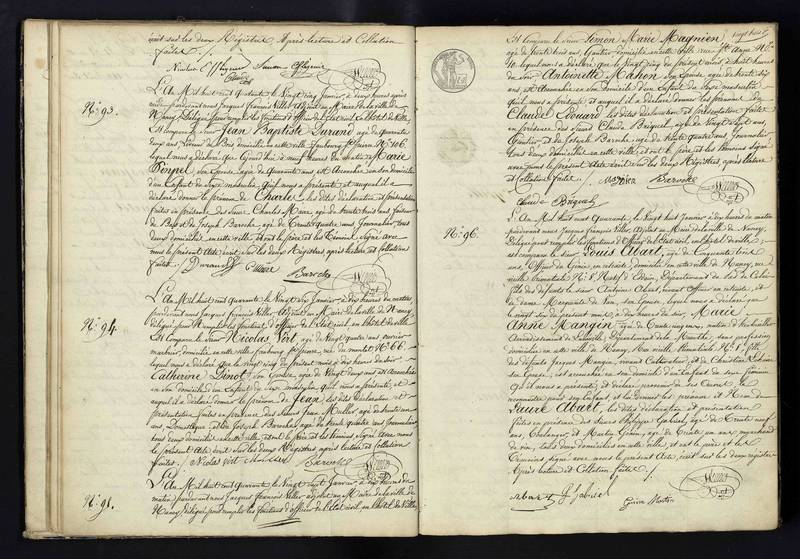 écrit sur les deux Registres. Après lecture et Collation
faites.
N.° 93.
L'An Mil huit cent quarante le Vingt cinq janvier, à deux heures après
midi, pardevant nous Jacques François Niller Adjoint au Maire de la ville de
Nancy, délégué pour remplir les fonctions d'officier de l'Etat civil, en l'hôtel de Ville,
Est comparu le Sieur Jean Baptiste Durand âgé de quarante
deux ans, de Bois, domicilié en cette ville, faubourg St Pierre, N.° 106,
lequel nous a déclaré que aujourd'hui à neuf heures du matin Marie
son Epouse, âgée de quarante ans est accouchée en son domicile
d'un Enfant du sexe masculin, qu'il nous a présenté et auquel il a
déclaré donner le prénom de Charles, les dites déclaration et présentation
faites en présence des Sieurs Charles Maire, âgé de trente trois ans, facteur
de Bois et de Joseph Baroche, âgé de trente quatre ans, Journalier,
tous domiciliés en cette ville, et ont le père et les témoins signé avec
nous le présent Acte écrit sur les deux Registres après lecture et collation
faites. Durand C Maire Baroche
N.° 94.
L'An Mil huit cent quarante le Vingt six Janvier, à dix heures du matin
pardevant nous Jacques François Niller Adjoint au Maire de la ville de Nancy
délégué pour remplir les fonctions d'officier de l'état civil, en l'hôtel de ville
Est comparu le Sieur Nicolas Vért, âgé de vingt quatre ans ouvrier
marbrier, domicilié en cette ville faubourg St Pierre, rue du montet N.° 66,
lequel nous a déclaré que le vingt cinq du présent mois à dix heures du soir
Catherine Dinot, son Epouse, âgée de vingt deux ans est accouchée
en son domicile d'un Enfant du sexe masculin qu'il nous a présenté, et
auquel il a déclaré donner le prénom de Jean, les dites Déclaration et
présentation faites en présence des Sieurs Jean Muller âgé de trente
ans, Domestique et de Joseph Baroche, âgé de trente quatre ans Journalier
tous deux domiciliés en cette ville, et ont le père et les témoins signé avec nous
le présent Acte écrit sur les deux Registres après lecture et collation
faites. Nicolas Vért Baroche
N.° 95.
L'An Mil huit cent quarante le vingt huit Janvier, à dix heures du
matin, pardevant nous Jacques françois Niller adjoint au Maire de la ville de
Nancy, délégué pour remplir les fonctions d'officier de l'état civil, en l'hôtel de Ville,
Est comparu le Sieur Simon Marie Magnien
âgé de trente trois ans, Gantier, domicilié en cette ville rue Ste Anne N.°
10, lequel nous a déclaré, que le vingt six du présent mois, à huit heures
du soir Antoinette Mahon, son Epouse, âgée de trente six
ans est accouchée en son domicile d'un Enfant du sexe masculin
qu'il nous a présenté et auquel il a déclaré donner les prénoms de
Claude Edouard, les dites déclaration et présentation faites
en présence des Sieurs Claude Briquel, âgé de vingt sept ans,
Gantier et de Joseph Baroche, âgé de trente quatre ans, Journalier
tous deux domiciliés en cette ville, et ont le père et les témoins signé
avec nous le présent Acte écrit sur les deux Registres, après lecture
et collation faites. Baroche
Claude Briquel
N.° 96.
L'An Mil huit cent quarante, le Vingt huit Janvier à dix heures du matin
pardevant nous Jacques françois Niller, Adjoint au Maire de la ville de Nancy,
délégué pour remplir les fonctions d'officier de l'état civil, en l'hôtel de ville,
est comparu le Sieur Louis Abart, âgé de cinquante trois
ans, officier du Génie, en retraite, domicilié en cette ville de Nancy, rue
fils des défunts le Sieur Antoine Abart, vivant officier en retraite, et
de Dame Marguerite de Vim, son Epouse, lequel nous a déclaré que
le vingt six du présent mois, à dix heures du soir, Marie
Anne Mangin, âgée de trente
Arrondissement de Lunéville, Département de la Meurthe, sans profession,
domiciliée en cette ville de Nancy, fille
des défunts Jacques Mangin, vivant Cultivateur, et de Christine
son Epouse, est accouchée en son domicile d'un Enfant du sexe féminin
qu'il nous a présenté, et déclaré provenir de ses œuvres, le
reconnaître pour son Enfant et lui donner les prénoms et Nom de
Laure Abart, les dites déclaration et présentation
faites en présence des Sieurs Philippe Gabriel, âgé de trente neuf
ans, Boulanger, et Martin Génin, âgé de trente un ans marchand
de vin, tous deux domiciliés en cette ville, et ont le père et les
témoins, signé avec nous le présent Acte, écrit sur les deux registres
Après lecture et Collation faites.
Abart P. Gabriel Génin Martin